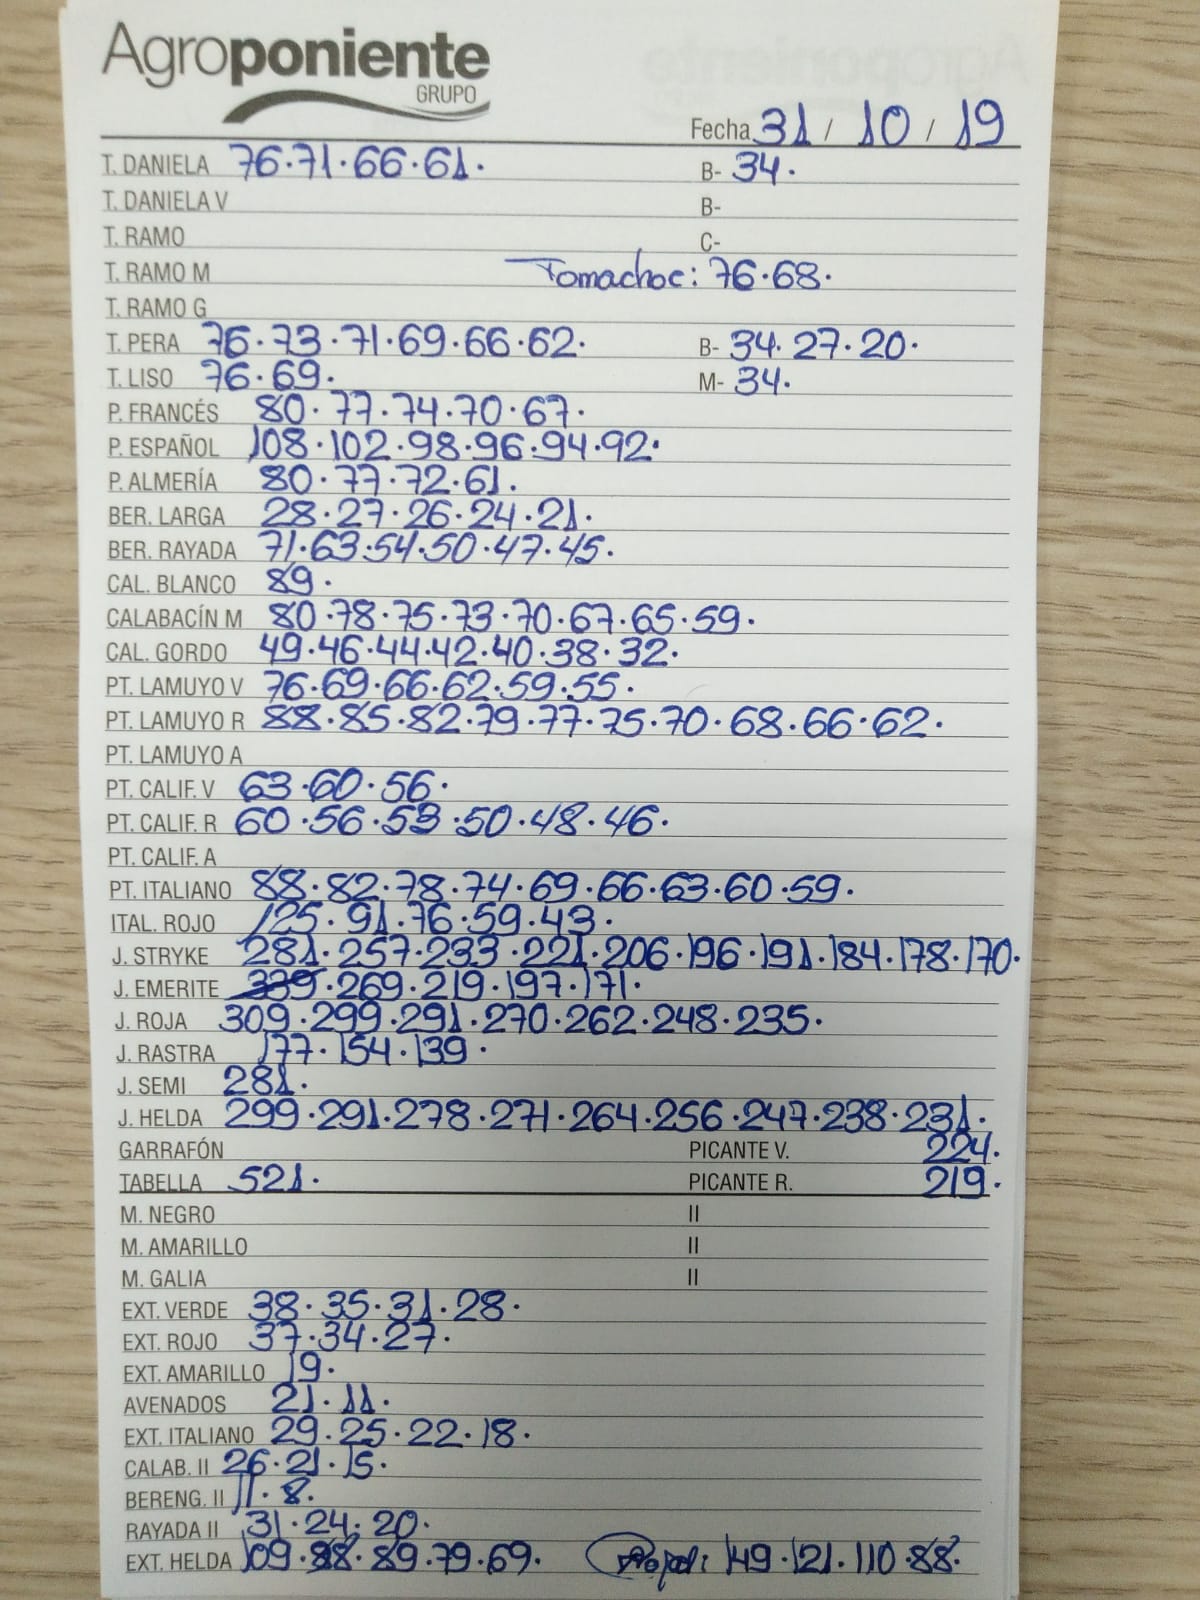 Agroponiente
GRUPO
Fecha 31 / 10 / 19
T. DANIELA 76·71·66·61· B- 34·
T. DANIELA V B-
T. RAMO C-
T. RAMO M Tomachoc: 76·68·
T. RAMO G
T. PERA 76·73·71·69·66·62· B- 34·27·20·
T. LISO 76·69· M- 34·
P. FRANCÉS 80·77·74·70·67·
P. ESPAÑOL 108·102·98·96·94·92·
P. ALMERÍA 80·77·72·61·
BER. LARGA 28·27·26·24·21·
BER. RAYADA 71·63·54·50·47·45·
CAL. BLANCO 89·
CALABACÍN M 80·78·75·73·70·67·65·59·
CAL. GORDO 49·46·44·42·40·38·32·
PT. LAMUYO V 76·69·66·62·59·55·
PT. LAMUYO R 88·85·82·79·77·75·70·68·66·62·
PT. LAMUYO A
PT. CALIF. V 63·60·56·
PT. CALIF. R 60·56·53·50·48·46·
PT. CALIF. A
PT. ITALIANO 88·82·78·74·69·66·63·60·59·
ITAL. ROJO 125·91·76·59·43·
J. STRYKE 281·257·233·221·206·196·191·184·178·170·
J. EMERITE 339·269·219·197·171·
J. ROJA 309·299·291·270·262·248·235·
J. RASTRA 177·154·139·
J. SEMI 281·
J. HELDA 299·291·278·271·264·256·247·238·231·
GARRAFÓN PICANTE V. 224·
TABELLA 521· PICANTE R. 219·
M. NEGRO II
M. AMARILLO II
M. GALIA II
EXT. VERDE 38·35·31·28·
EXT. ROJO 37·34·27·
EXT. AMARILLO 19·
AVENADOS 21·11·
EXT. ITALIANO 29·25·22·18·
CALAB. II 26·21·15·
BERENG. II 11·8·
RAYADA II 31·24·20·
EXT. HELDA 109·98·89·79·69· 149·121·110·88·